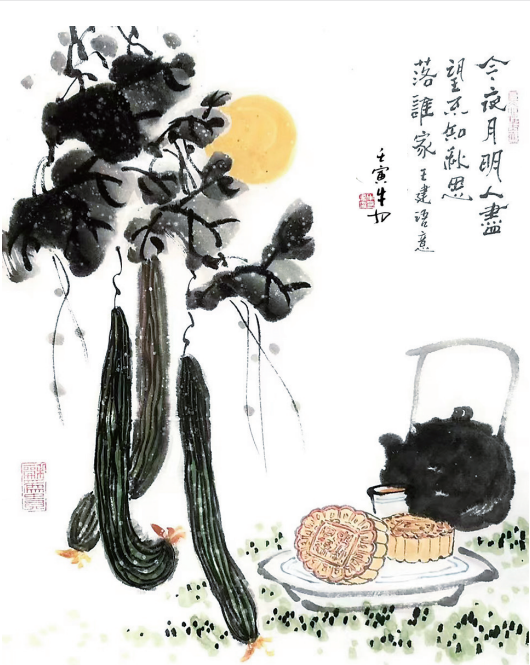 今夜月明人盡
望不知秋思
落誰家 王建語意
壬寅牛